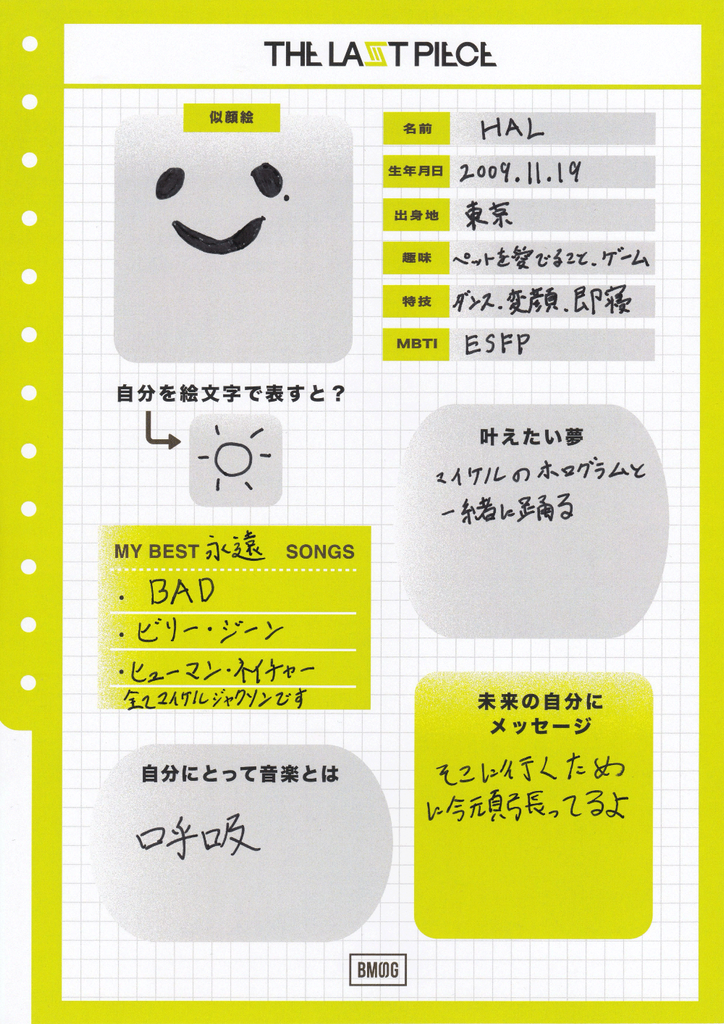 THE LAST PIECE
似顔絵
名前 HAL
生年月日 2009.11.19
出身地 東京
趣味 ペットを愛でること、ゲーム
特技 ダンス、変顔、即寝
MBTI ESFP
自分を絵文字で表すと？
叶えたい夢
マイケルのホログラムと
一緒に踊る
MY BEST 永遠 SONGS
・BAD
・ビリー・ジーン
・ヒューマン・ネイチャー
全てマイケルジャクソンです
未来の自分に
メッセージ
そこに行くため
に今頑張ってるよ
自分にとって音楽とは
呼吸
BMSG